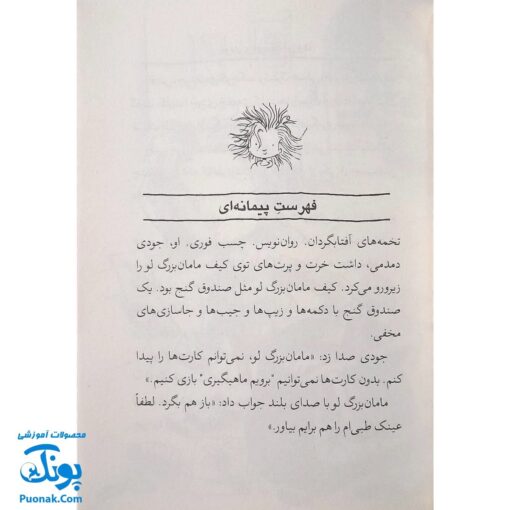 فهرستِ پیمانه‌ای
تخمه‌های آفتابگردان. روان‌نویس. چسب فوری. او، جودی
دمدمی، داشت خرت و پرت‌های توی کیف مامان‌بزرگ لو را
زیرورو می‌کرد. کیف مامان‌بزرگ لو مثل صندوق گنج بود. یک
صندوق گنج با دکمه‌ها و زیپ‌ها و جیب‌ها و جاسازی‌های
مخفی.
جودی صدا زد: «مامان‌بزرگ لو، نمی‌توانم کارت‌ها را پیدا
کنم. بدون کارت‌ها نمی‌توانیم "برویم ماهیگیری" بازی کنیم.»
مامان‌بزرگ لو با صدای بلند جواب داد: «باز هم بگرد. لطفاً
عینک طبی‌ام را هم برایم بیاور.»
محصولات آموزشی
پونک
Puonak.Com